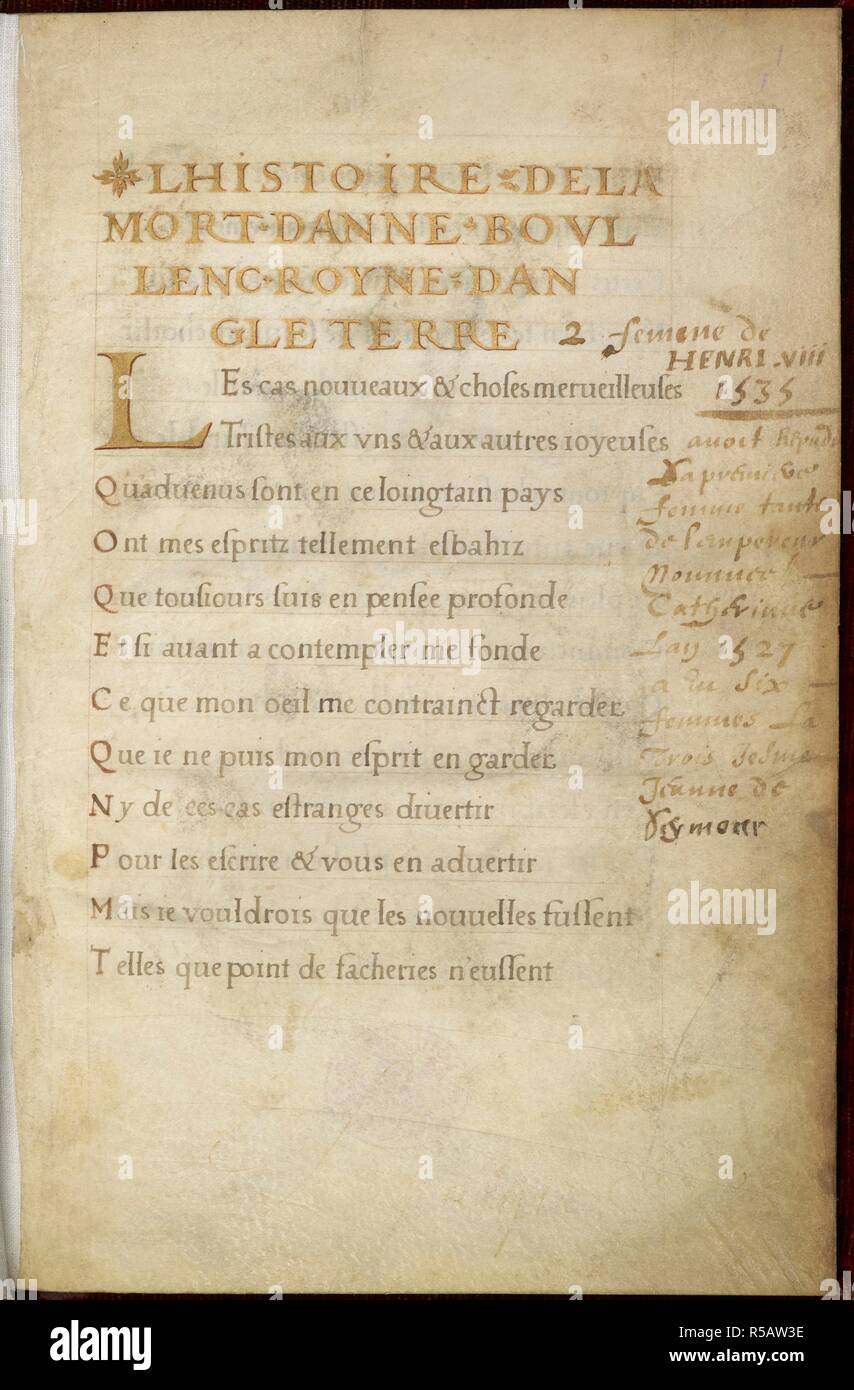 LHISTOIRE DE LA
MORT·DANNE·BOVL
LENC·ROYNE·DAN
GLETERRE
2 femme de
HENRI·VIII
1535
LEs cas nouueaux & choses merueilleuses
Tristes aux vns & aux autres ioyeuses
Quaduenus sont en ce loingtain pays
Ont mes espritz tellement esbahiz
Que tousiours suis en pensee profonde
Et si auant a contempler me fonde
Ce que mon oeil me contrainct regarder
Que ie ne puis mon esprit en garder
Ny de ces cas estranges diuertir
Pour les escrire & vous en aduertir
Mais ie vouldrois que les nouuelles fussent
Telles que point de facheries n'eussent
avoit
La premiere
femme tante
de lanpereur
Nommee
Catherinne
Lan 1527
a eu six
femmes La
Trois
Jeanne de
Seymour
alamy
Image ID: R5AW3E
www.alamy.com